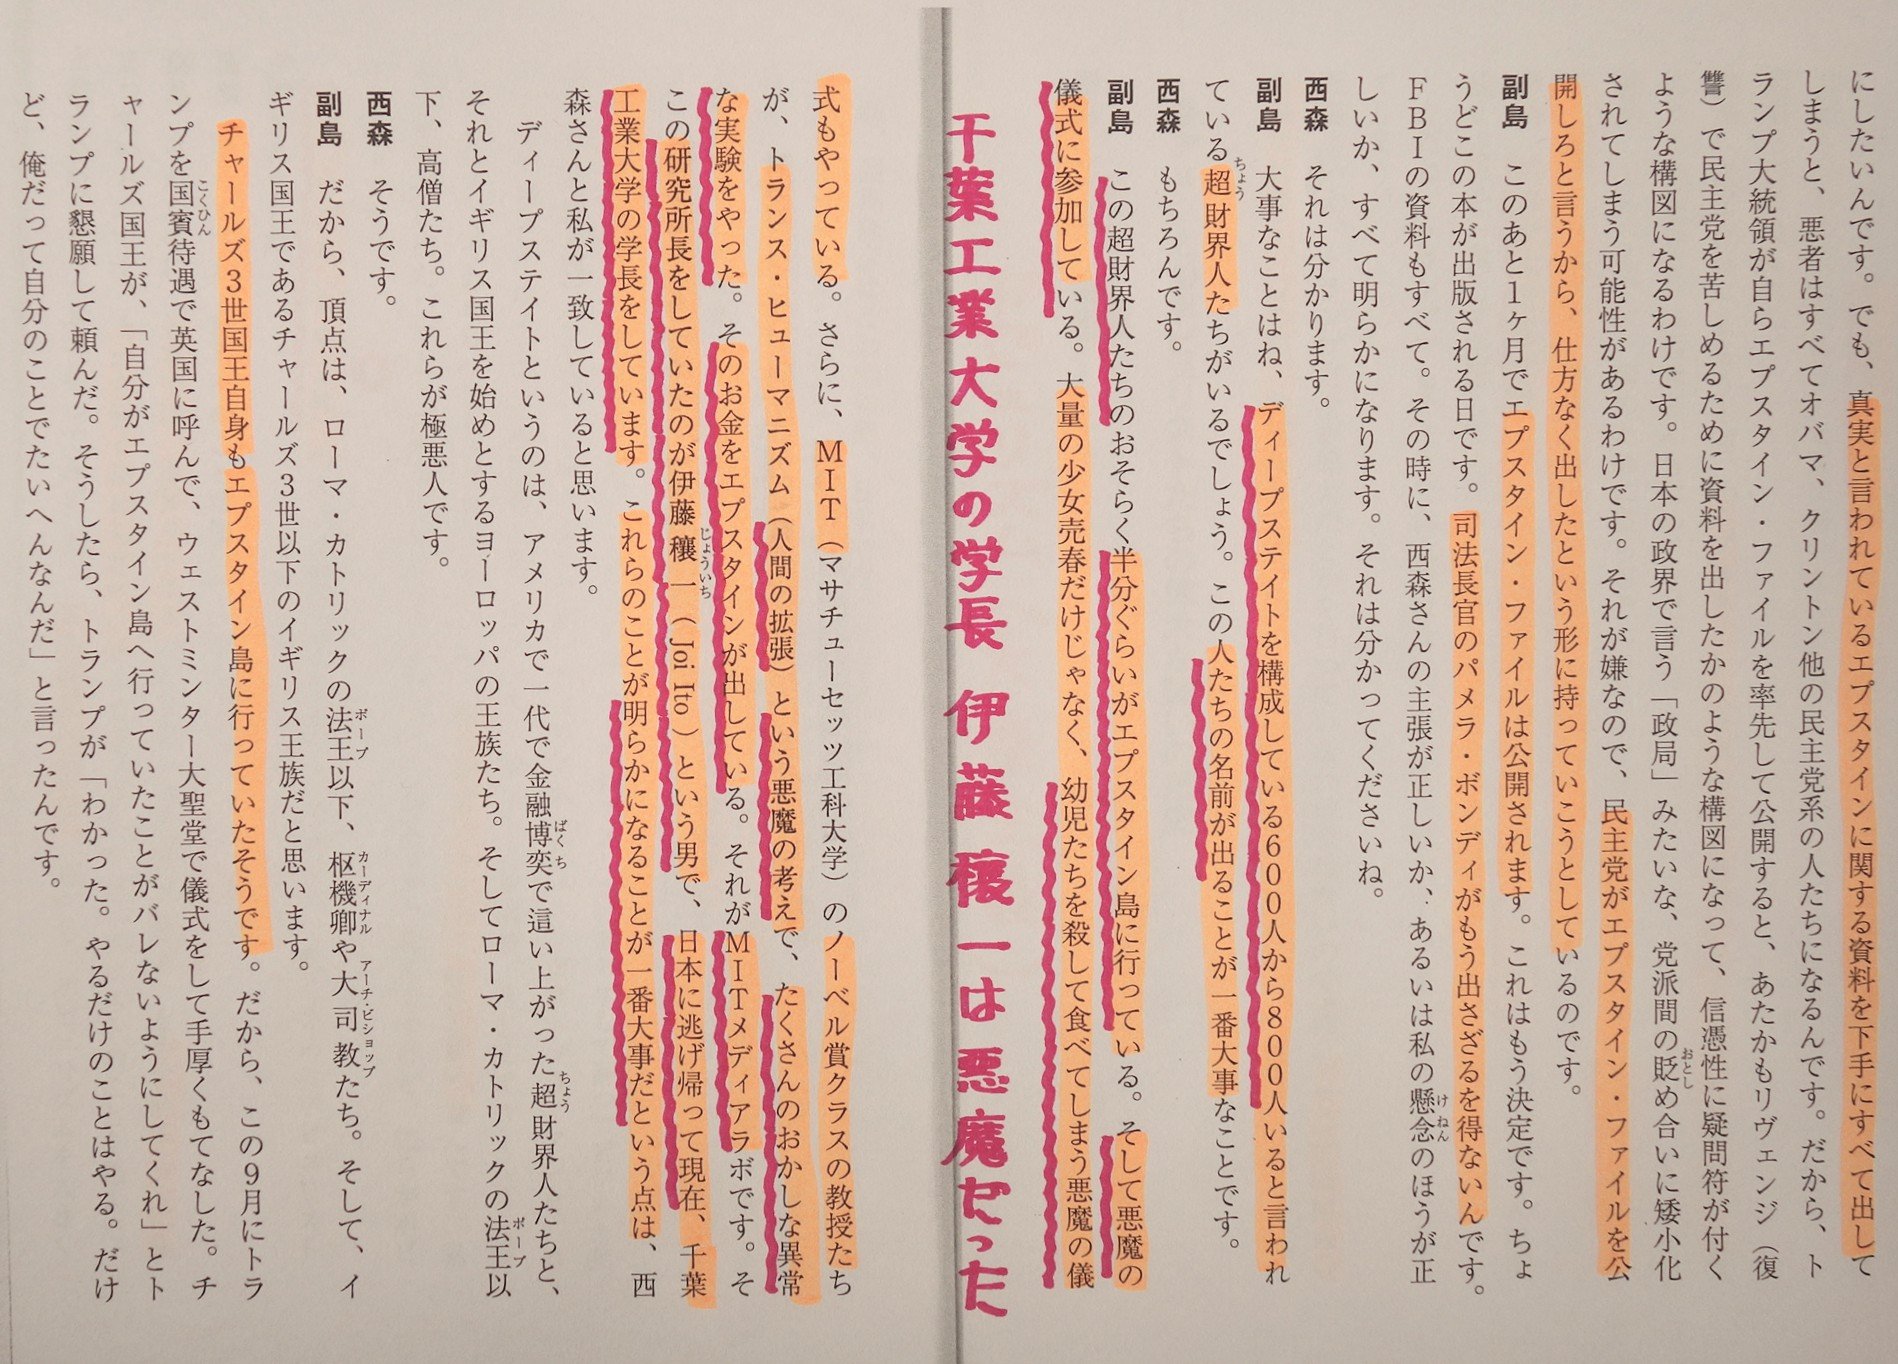 にしたいんです。でも、真実と言われているエプスタインに関する資料を下手にすべて出して
しまうと、悪者はすべてオバマ、クリントン他の民主党系の人たちになるんです。だから、ト
ランプ大統領が自らエプスタイン・ファイルを率先して公開すると、あたかもリヴェンジ（復
讐）で民主党を苦しめるために資料を出したかのような構図になって、信憑性に疑問符が付く
ような構図になるわけです。日本の政界で言う「政局」みたいな、党派間の貶め合いに矮小化
おとし
されてしまう可能性があるわけです。それが嫌なので、民主党がエプスタイン・ファイルを公
開しろと言うから、仕方なく出したという形に持っていこうとしているのです。
副島　このあと1ヶ月でエプスタイン・ファイルは公開されます。これはもう決定です。ちょ
うどこの本が出版される日です。司法長官のパメラ・ボンディがもう出さざるを得ないんです。
FBIの資料もすべて。その時に、西森さんの主張が正しいか、あるいは私の懸念のほうが正
けねん
しいか、すべて明らかになります。それは分かってくださいね。
西森　それは分かります。
副島　大事なことはね、ディープステイトを構成している600人から800人いると言われ
ている超財界人たちがいるでしょう。この人たちの名前が出ることが一番大事なことです。
ちょう
西森　もちろんです。
副島　この超財界人たちのおそらく半分ぐらいがエプスタイン島に行っている。そして悪魔の
儀式に参加している。大量の少女売春だけじゃなく、幼児たちを殺して食べてしまう悪魔の儀
千葉工業大学の学長 伊藤穰一は悪魔だった
式もやっている。さらに、MIT（マサチューセッツ工科大学）のノーベル賞クラスの教授たち
が、トランス・ヒューマニズム（人間の拡張）という悪魔の考えで、たくさんのおかしな異常
な実験をやった。そのお金をエプスタインが出している。それがMITメディアラボです。そ
この研究所長をしていたのが伊藤穰一（Joi Ito）という男で、日本に逃げ帰って現在、千葉
じょういち
工業大学の学長をしています。これらのことが明らかになることが一番大事だという点は、西
森さんと私が一致していると思います。
ディープステイトというのは、アメリカで一代で金融博奕で這い上がった超財界人たちと、
ばくち
ちょう
それとイギリス国王を始めとするヨーロッパの王族たち。そしてローマ・カトリックの法王以
ポープ
下、高僧たち。これらが極悪人です。
西森　そうです。
副島　だから、頂点は、ローマ・カトリックの法王以下、枢機卿や大司教たち。そして、イ
ポープ
カーディナル
アーチ・ビショップ
ギリス国王であるチャールズ3世以下のイギリス王族だと思います。
チャールズ3世国王自身もエプスタイン島に行っていたそうです。だから、この9月にトラ
ンプを国賓待遇で英国に呼んで、ウェストミンター大聖堂で儀式をして手厚くもてなした。チ
こくひん
ャールズ国王が、「自分がエプスタイン島へ行っていたことがバレないようにしてくれ」とト
ランプに懇願して頼んだ。そうしたら、トランプが「わかった。やるだけのことはやる。だけ
ど、俺だって自分のことでたいへんなんだ」と言ったんです。